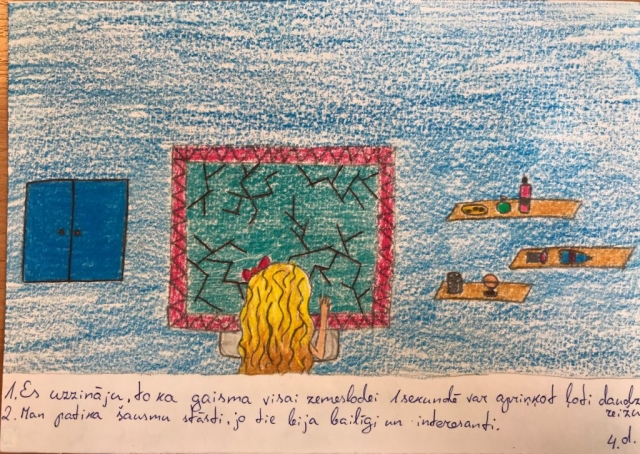 1. Es uzzināju, to ka gaisma visai zemeslodei 1 sekundē var apriņķot ļoti daudz
reižu
2. Man patika šausmu stāsti, jo tie bija bailīgi un interesanti.
4.d.